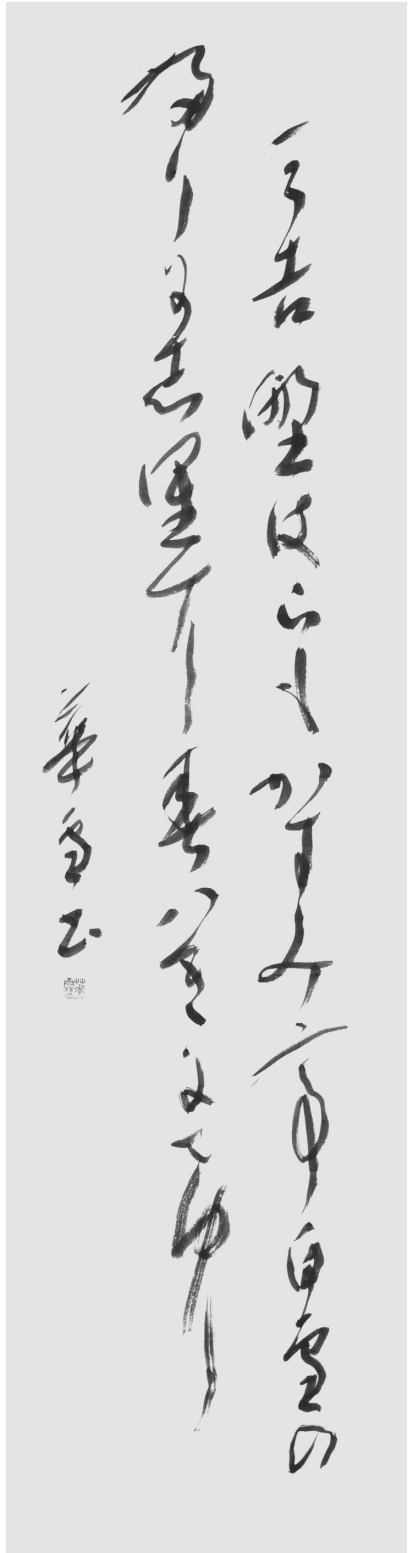 三吉野は山もかすみて白雪の
ふりにし里に春はきにけり
華雪書